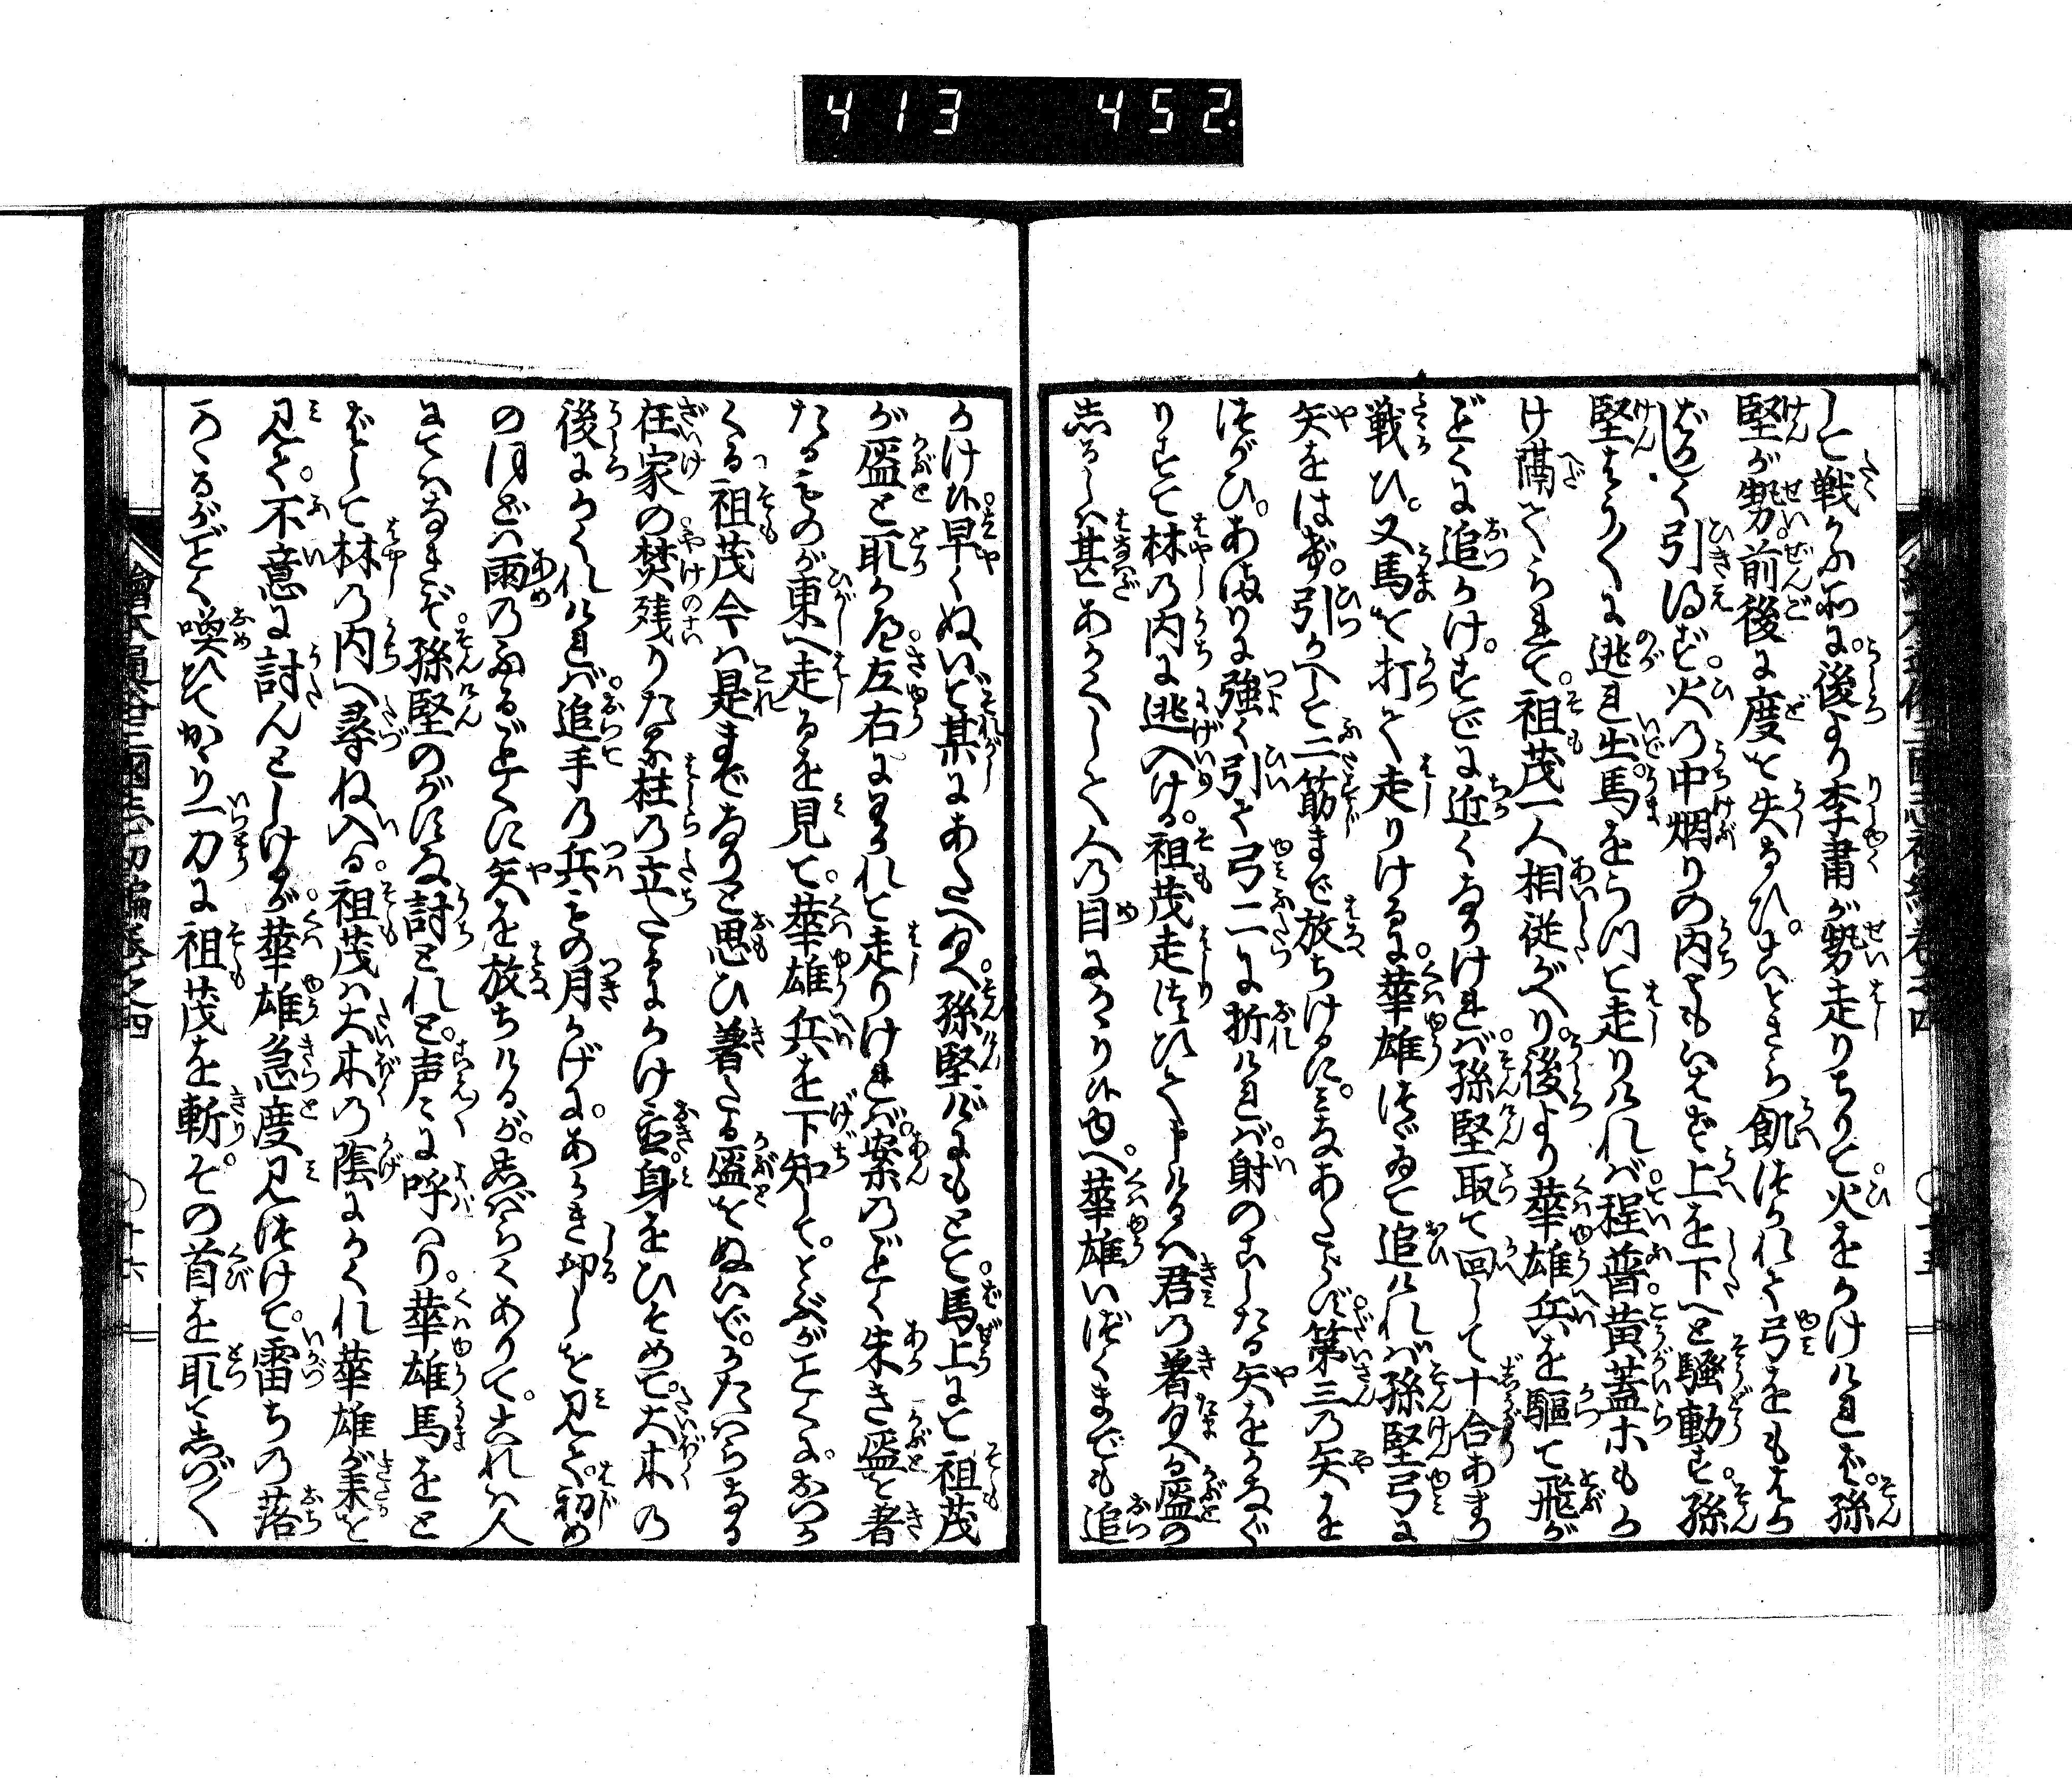 413 452.
して戦ふ所に。後より李粛が勢走りちりて火をかけければ。孫
堅が勢。前後に度を失なひ。ことさら飢つかれて弓をもはら
ず引得ず。火の中烟りの内ともいはず上を下へと騒動す。孫
堅やう〱に逃れ出。馬をうつて走りければ。程普。黄蓋ホもか
け隔てられて。祖茂一人相従がへり。後より華雄兵を驅て飛が
ごとくに追かけ。すでに近くなりければ。孫堅取て回して十合あまり
戦ひ。又馬を打て走りけるに。華雄つゞゐて追ければ孫堅弓に
矢をはげ。引かへして二筋まで放ちけるに。みなあたらず。第三の矢を
つがひ。あまりに強く引て弓二に折ければ。射のこしたる矢をかなぐ
りすて林の内に逃入ける。祖茂走つひて申けるは君の着たまへる盔の
しるし甚だあかくして人の目にかゝり候ゆへ。華雄いづくまでも追
かけ候。早くぬいで某にあたへ給へ。孫堅げにもとて。馬上にて祖茂
が盔と取かへ。左右にわかれて走りければ。案のごとく朱き盔を着
たるものが東へ走るを見て。華雄兵を下知して。とぶがごとくに。おつか
くる祖茂今は是までなりと思ひ着たる盔をぬいで。かたはらなる
在家の焚残りたる柱の立たるにかけ置。身をひそめて。大木の
後にかくれければ。追手の兵もの月かげに。あかき印しを見て。初め
のほどは雨のふるごとくに矢を放ちけるが。しばらくありて。これは人
にてはなきぞ孫堅のがすな討とれと。声〻に呼はり。華雄馬をと
ばして林の内へ尋ね入る。祖茂は大木の陰にかくれ華雄が来を
見て。不意に討んとしけるが。華雄急度見つけて。雷ちの落
かゝるがごとく喚ひてかゝり一刀に祖茂を斬。その首を取てしづ〱
繪本通俗三國志初編巻之四